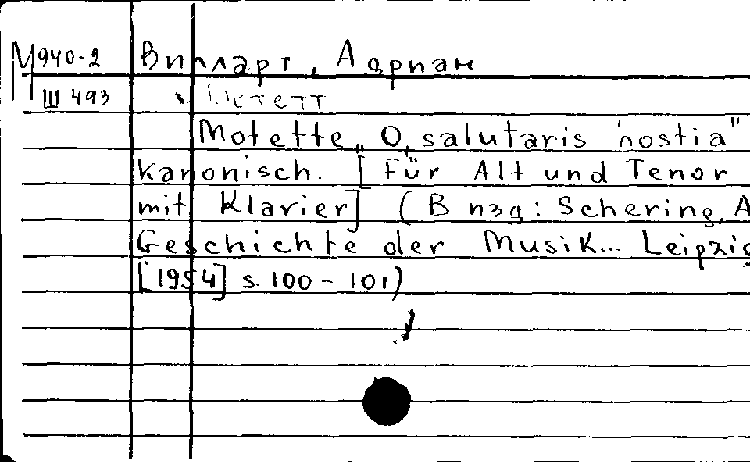 М940-2 Вилларт, Адриан
Ш 493 Мотетт
Motette „O salutaris hostia"
kanonisch. [Für Alt und Tenor
mit Klavier] (В изд: Schering, A
Geschichte der Musik... Leipzig
[1954] s. 100-101)